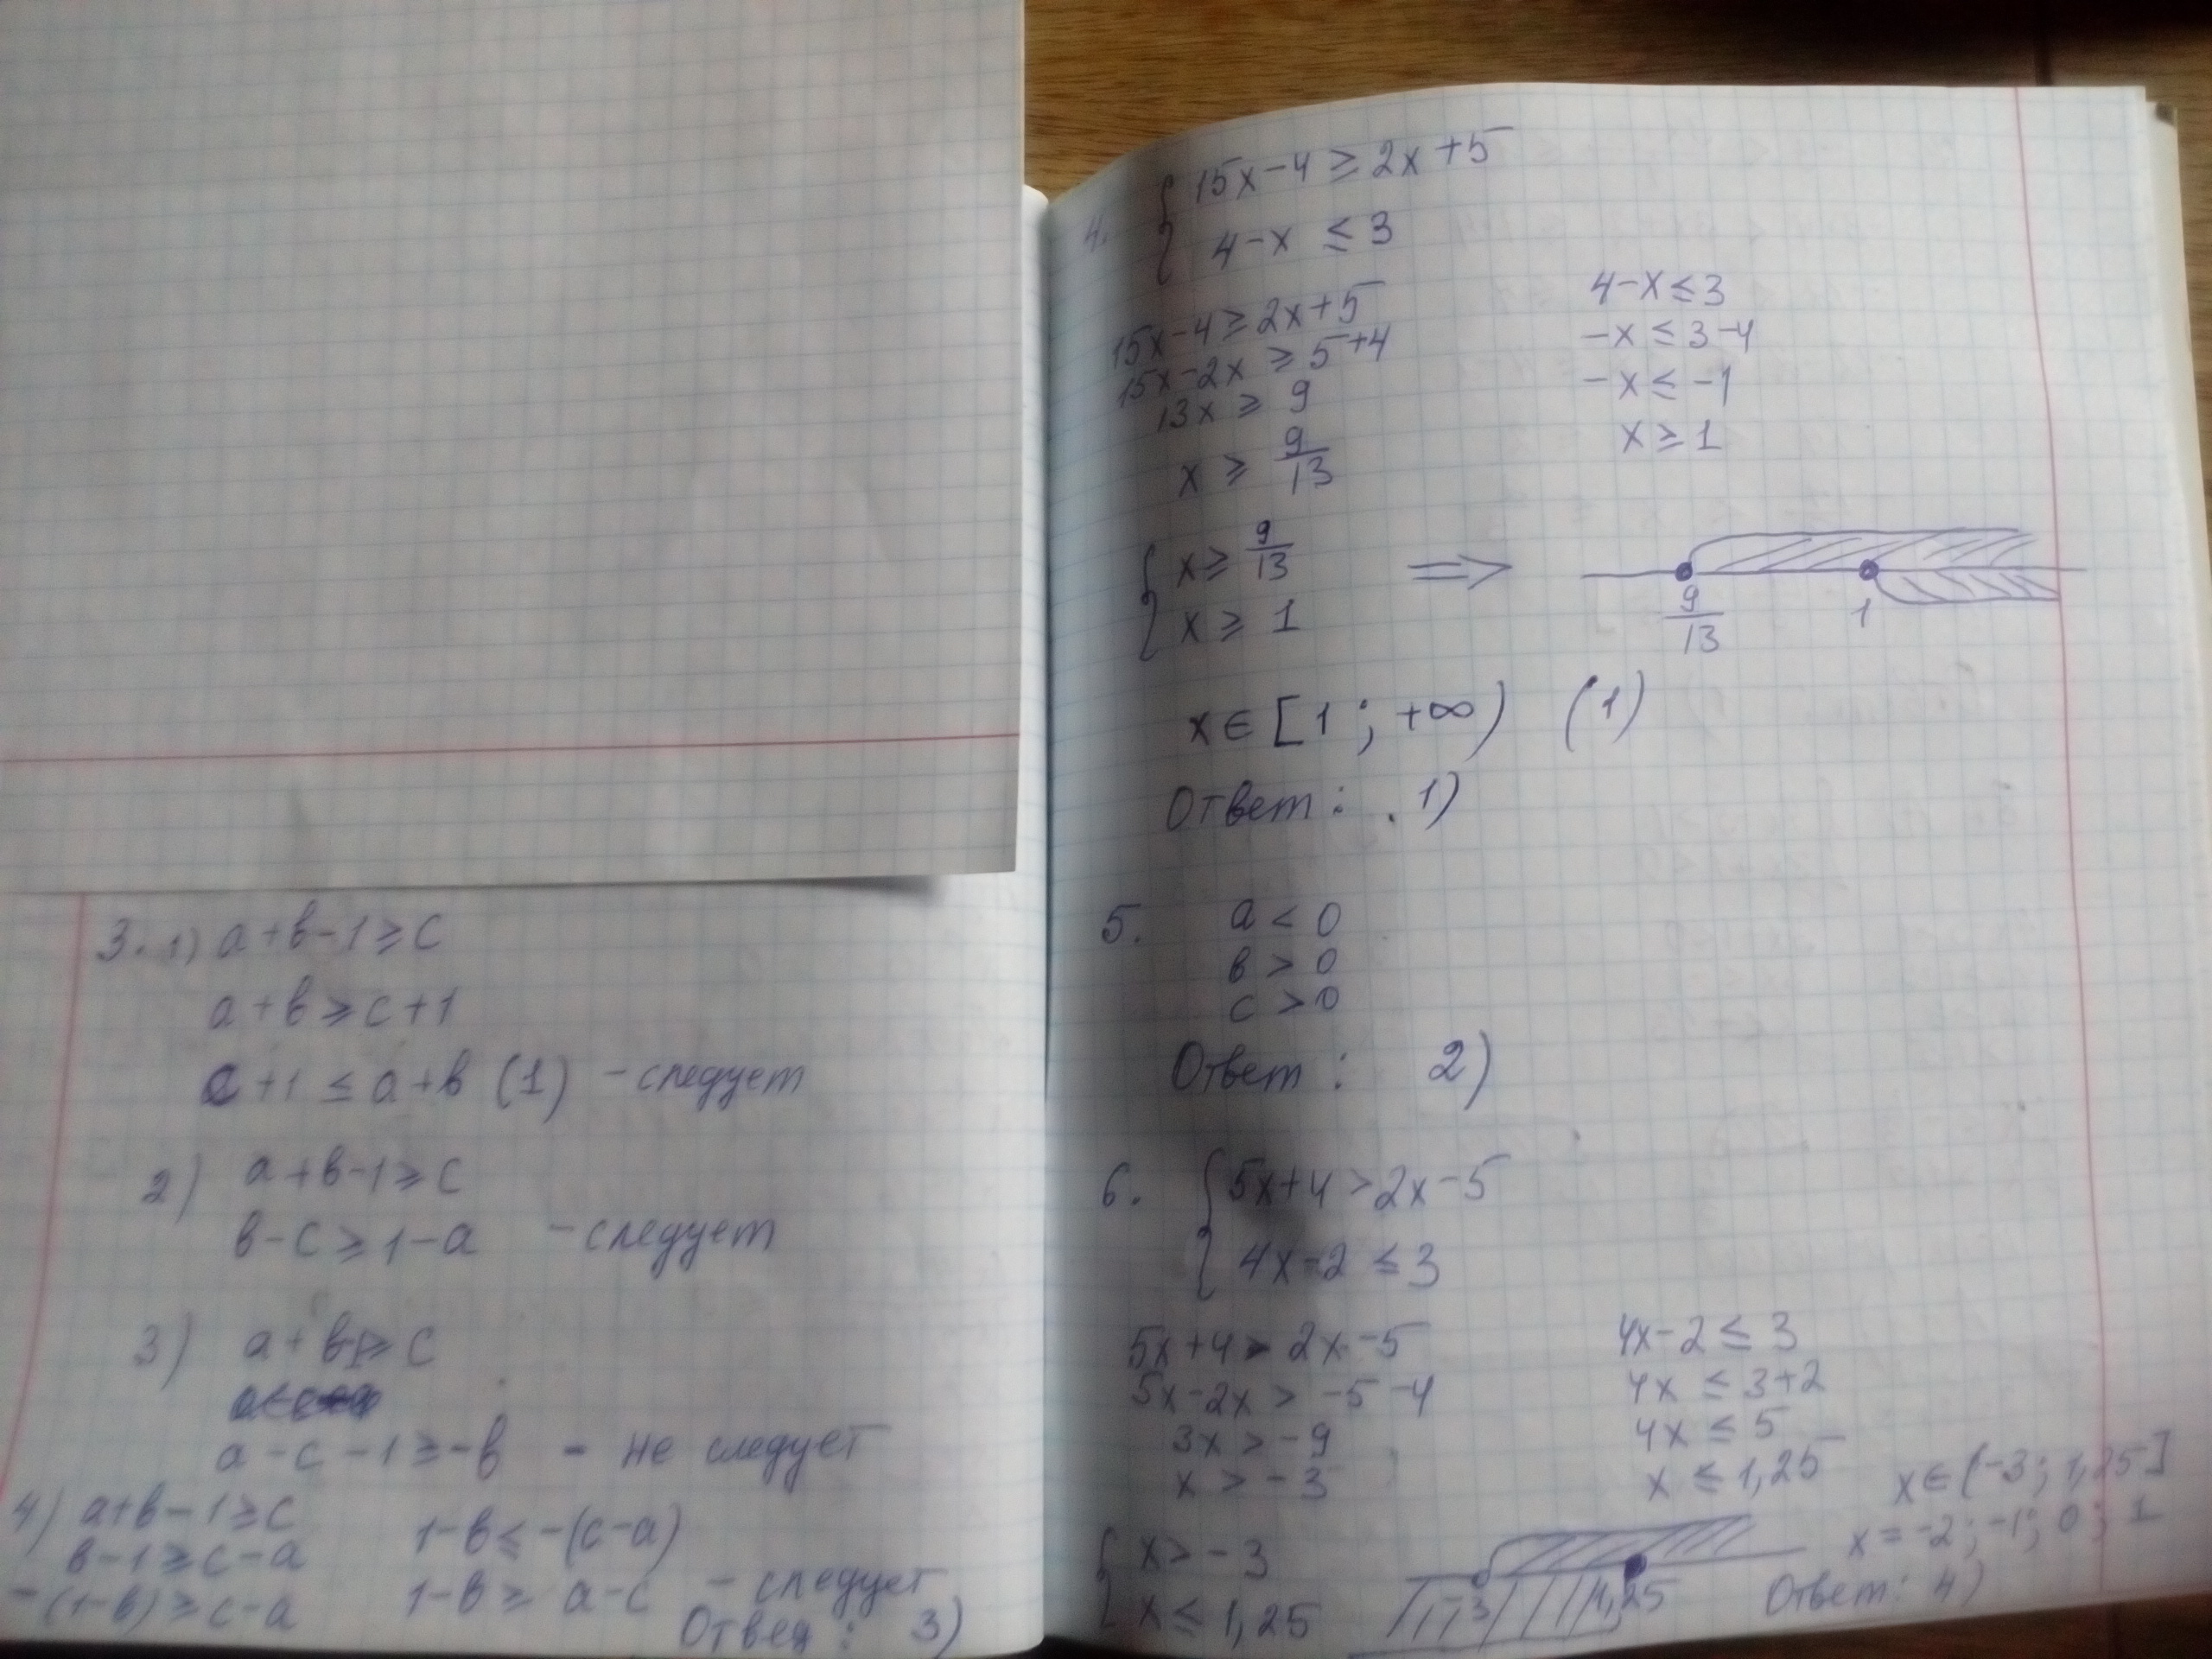 3. 1) a+b-1≥c
a+b≥c+1
c+1≤a+b (1) - следует
2) a+b-1≥c
b-c≥1-a - следует
3) a+b-1≥c
a-c-1≥-b - не следует
4) a+b-1≥c
b-1≥c-a
-(1-b)≥c-a
1-b≤-(c-a)
1-b≥a-c - следует
Ответ: 3)
4. { 15x-4≥2x+5
4-x≤3
15x-4≥2x+5
15x-2x≥5+4
13x≥9
x≥9/13
4-x≤3
-x≤3-4
-x≤-1
x≥1
{ x≥9/13
x≥1
⇒
9/13 1
x∈[1;+∞) (1)
Ответ: 1)
5. a<0
b>0
c>0
Ответ: 2)
6. { 5x+4>2x-5
4x-2≤3
5x+4>2x-5
5x-2x>-5-4
3x>-9
x>-3
4x-2≤3
4x≤3+2
4x≤5
x≤1,25
{ x>-3
x≤1,25
-3 1,25
x∈(-3;1,25]
x=-2;-1;0;1
Ответ: 4)